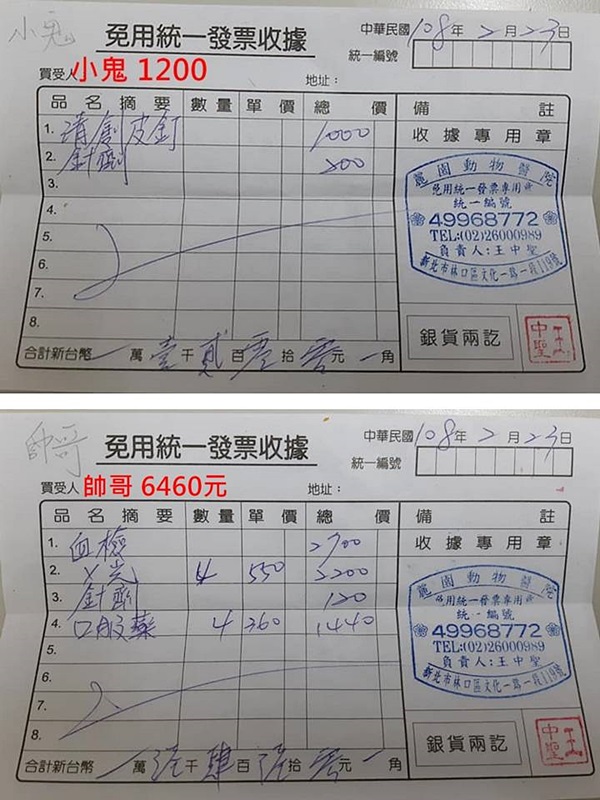 小鬼
免用統一發票收據
中華民國108年2月23日
統一編號
買受人 小鬼 1200
地址：
品名摘要 數量 單價 總價 備註
1. 清創皮釘 1000
2. 針劑 200
3.
4.
5.
6.
7.
8.
收據專用章
麗園動物醫院
免用統一發票專用章
統一編號
49968772
TEL:(02)26000989
負責人:王中聖
新北市林口區文化一路一段119號
銀貨兩訖
王中聖
合計新台幣 萬壹千貳百零拾零元 角
帥哥
免用統一發票收據
中華民國108年2月23日
統一編號
買受人 帥哥 6460元
地址：
品名摘要 數量 單價 總價 備註
1. 血檢 2700
2. X光 4 550 2200
3. 針劑 120
4. 口服藥 4 360 1440
5.
6.
7.
8.
收據專用章
麗園動物醫院
免用統一發票專用章
統一編號
49968772
TEL:(02)26000989
負責人:王中聖
新北市林口區文化一路一段119號
銀貨兩訖
王中聖
合計新台幣 萬陸千肆百陸拾零元 角